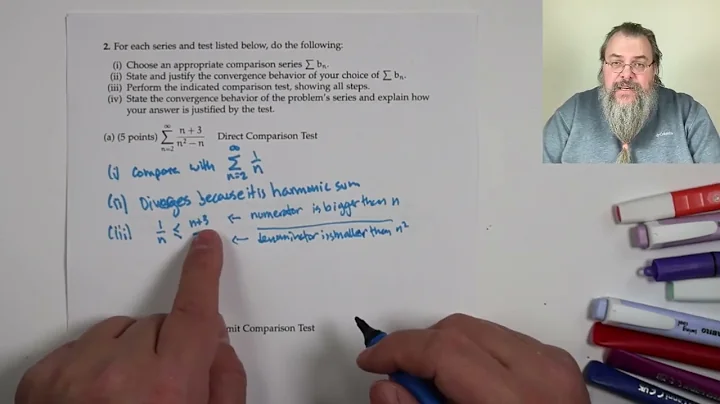 2. For each series and test listed below, do the following:
(i) Choose an appropriate comparison series ∑ bₙ.
(ii) State and justify the convergence behavior of your choice of ∑ bₙ.
(iii) Perform the indicated comparison test, showing all steps.
(iv) State the convergence behavior of the problem's series and explain how
your answer is justified by the test.
(a) (5 points) ∑_{n=2}^{∞} (n + 3)/(n² − n) Direct Comparison Test
(i) Compare with ∑_{n=2}^{∞} 1/n
(ii) Diverges because it is harmonic sum
(iii) 1/n ≤ n+3 ← numerator is bigger than n
← denominator is smaller than n²
mit Comparison Test
Columbia